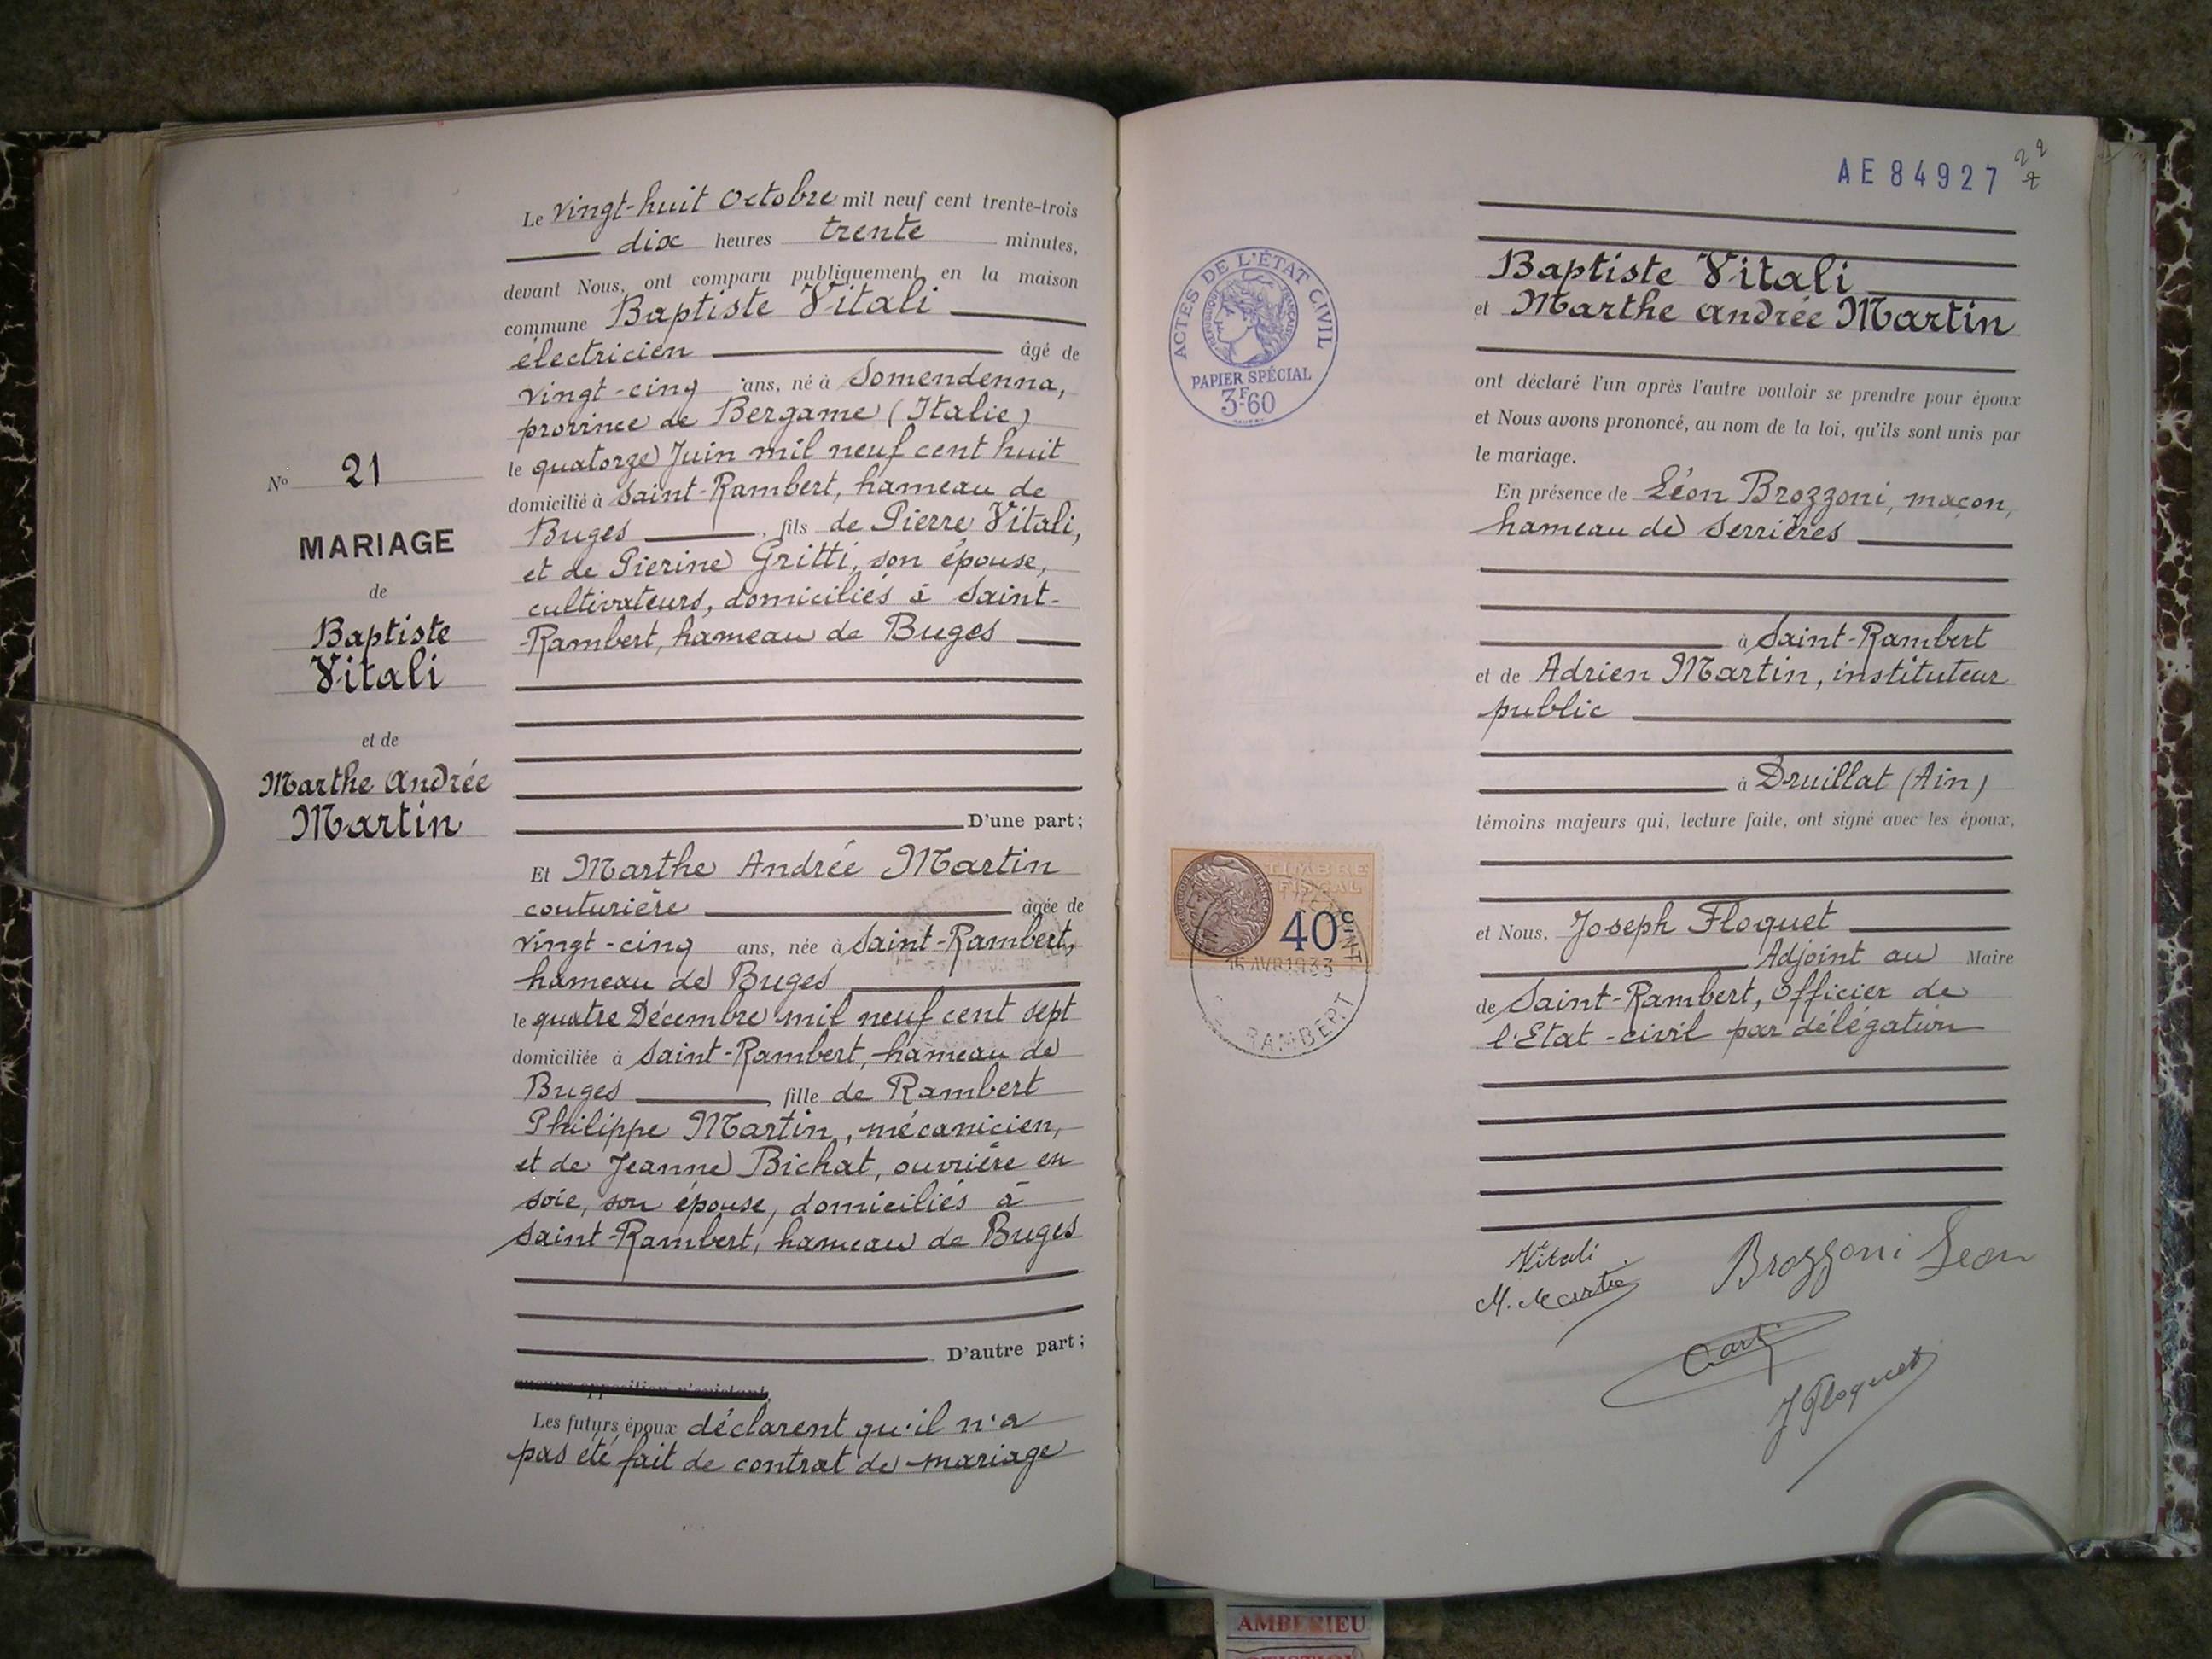 Le vingt-huit Octobre mil neuf cent trente-trois
dix heures trente minutes,
devant Nous, ont comparu publiquement en la maison
commune Baptiste Vitali
électricien âgé de
vingt-cinq ans, né à Somendenna,
province de Bergame (Italie)
le quatorze Juin mil neuf cent huit
domicilié à Saint-Rambert, hameau de
Buges, fils de Pierre Vitali,
et de Pierine Gritti, son épouse,
cultivateurs, domiciliés à Saint-
-Rambert, hameau de Buges
D'une part;
N° 21
MARIAGE
de
Baptiste
Vitali
et de
Marthe Andrée
Martin
Et Marthe Andrée Martin
couturière âgée de
vingt-cinq ans, née à Saint-Rambert,
hameau de Buges
le quatre Décembre mil neuf cent sept
domiciliée à Saint-Rambert, hameau de
Buges, fille de Rambert
Philippe Martin, mécanicien,
et de Jeanne Bichat, ouvrière en
soie, son épouse, domiciliés à
Saint-Rambert, hameau de Buges
D'autre part;
aucune opposition n'existant,
Les futurs époux déclarent qu'il n'a
pas été fait de contrat de mariage
AE84927
22
ACTES DE L'ÉTAT CIVIL
RÉPUBLIQUE FRANÇAISE
PAPIER SPÉCIAL
3F60
Baptiste Vitali
et Marthe Andrée Martin
ont déclaré l'un après l'autre vouloir se prendre pour époux
et Nous avons prononcé, au nom de la loi, qu'ils sont unis par
le mariage.
En présence de Léon Brozzoni, maçon,
hameau de Serrières
à Saint-Rambert
et de Adrien Martin, instituteur
public
à Druillat (Ain)
témoins majeurs qui, lecture faite, ont signé avec les époux,
TIMBRE
FISCAL
40c
15 AVR 1933
RAMBERT
et Nous, Joseph Floquet
Adjoint au Maire
de Saint-Rambert, Officier de
l'Etat-civil par délégation
Vitali
M. Martin
Brozzoni Leon
J Floquet
AMBERIEU